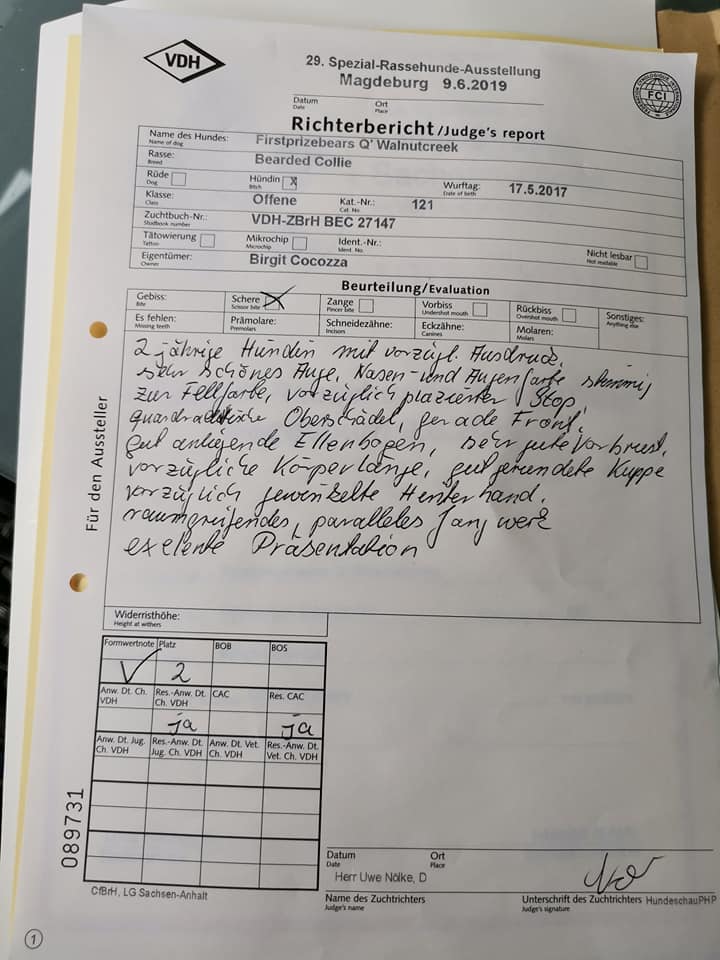 VDH
29. Spezial-Rassehunde-Ausstellung
Magdeburg 9.6.2019
Datum Ort
Date Place
FCI
Richterbericht/Judge's report
Name des Hundes: Firstprizebears Q' Walnutcreek
Name of dog
Rasse: Bearded Collie
Breed
Rüde Hündin X Wurftag: 17.5.2017
Dog Bitch Date of birth
Klasse: Offene Kat.-Nr.: 121
Class Cat. No
Zuchtbuch-Nr.: VDH-ZBrH BEC 27147
Studbook number
Tätowierung Mikrochip Ident.-Nr.: Nicht lesbar
Tattoo Microchip Ident. No. Not readable
Eigentümer: Birgit Cocozza
Owner
Beurteilung/Evaluation
Gebiss: Schere X Zange Vorbiss Rückbiss Sonstiges:
Bite Scissor bite Pincer bite Undershot mouth Overshot mouth Anything else
Es fehlen: Prämolare: Schneidezähne: Eckzähne: Molaren:
Missing teeth Premolars Incisors Canines Molars
2 jährige Hündin mit vorzügl. Ausdruck,
sehr schönes Auge, Nasen- und Augenfarbe stimmig
zur Fellfarbe, vorzüglich plazierter Stop,
Oberschädel, gerade Front,
gut anliegende Ellenbogen, sehr gute Vorbrust,
vorzügliche Körperlänge, gut gerundete Kuppe
vorzüglich gewinkelte Hinterhand,
raumgreifendes, paralleles Gangwerk
exelente Präsentation
Für den Aussteller
Widerristhöhe:
Height at withers
Formwertnote Platz BOB BOS
V 2
Anw. Dt. Ch. VDH Res.-Anw. Dt. Ch. VDH CAC Res. CAC
ja ja
Anw. Dt. Jug. Ch. VDH Res.-Anw. Dt. Jug. Ch. VDH Anw. Dt. Vet. Ch. VDH Res.-Anw. Dt. Vet. Ch. VDH
089731
CfBrH, LG Sachsen-Anhalt
Datum Ort
Date Place
Herr Uwe Nölke, D
Name des Zuchtrichters Unterschrift des Zuchtrichters HundeschauPHP
Judge's name Judge's signature
1